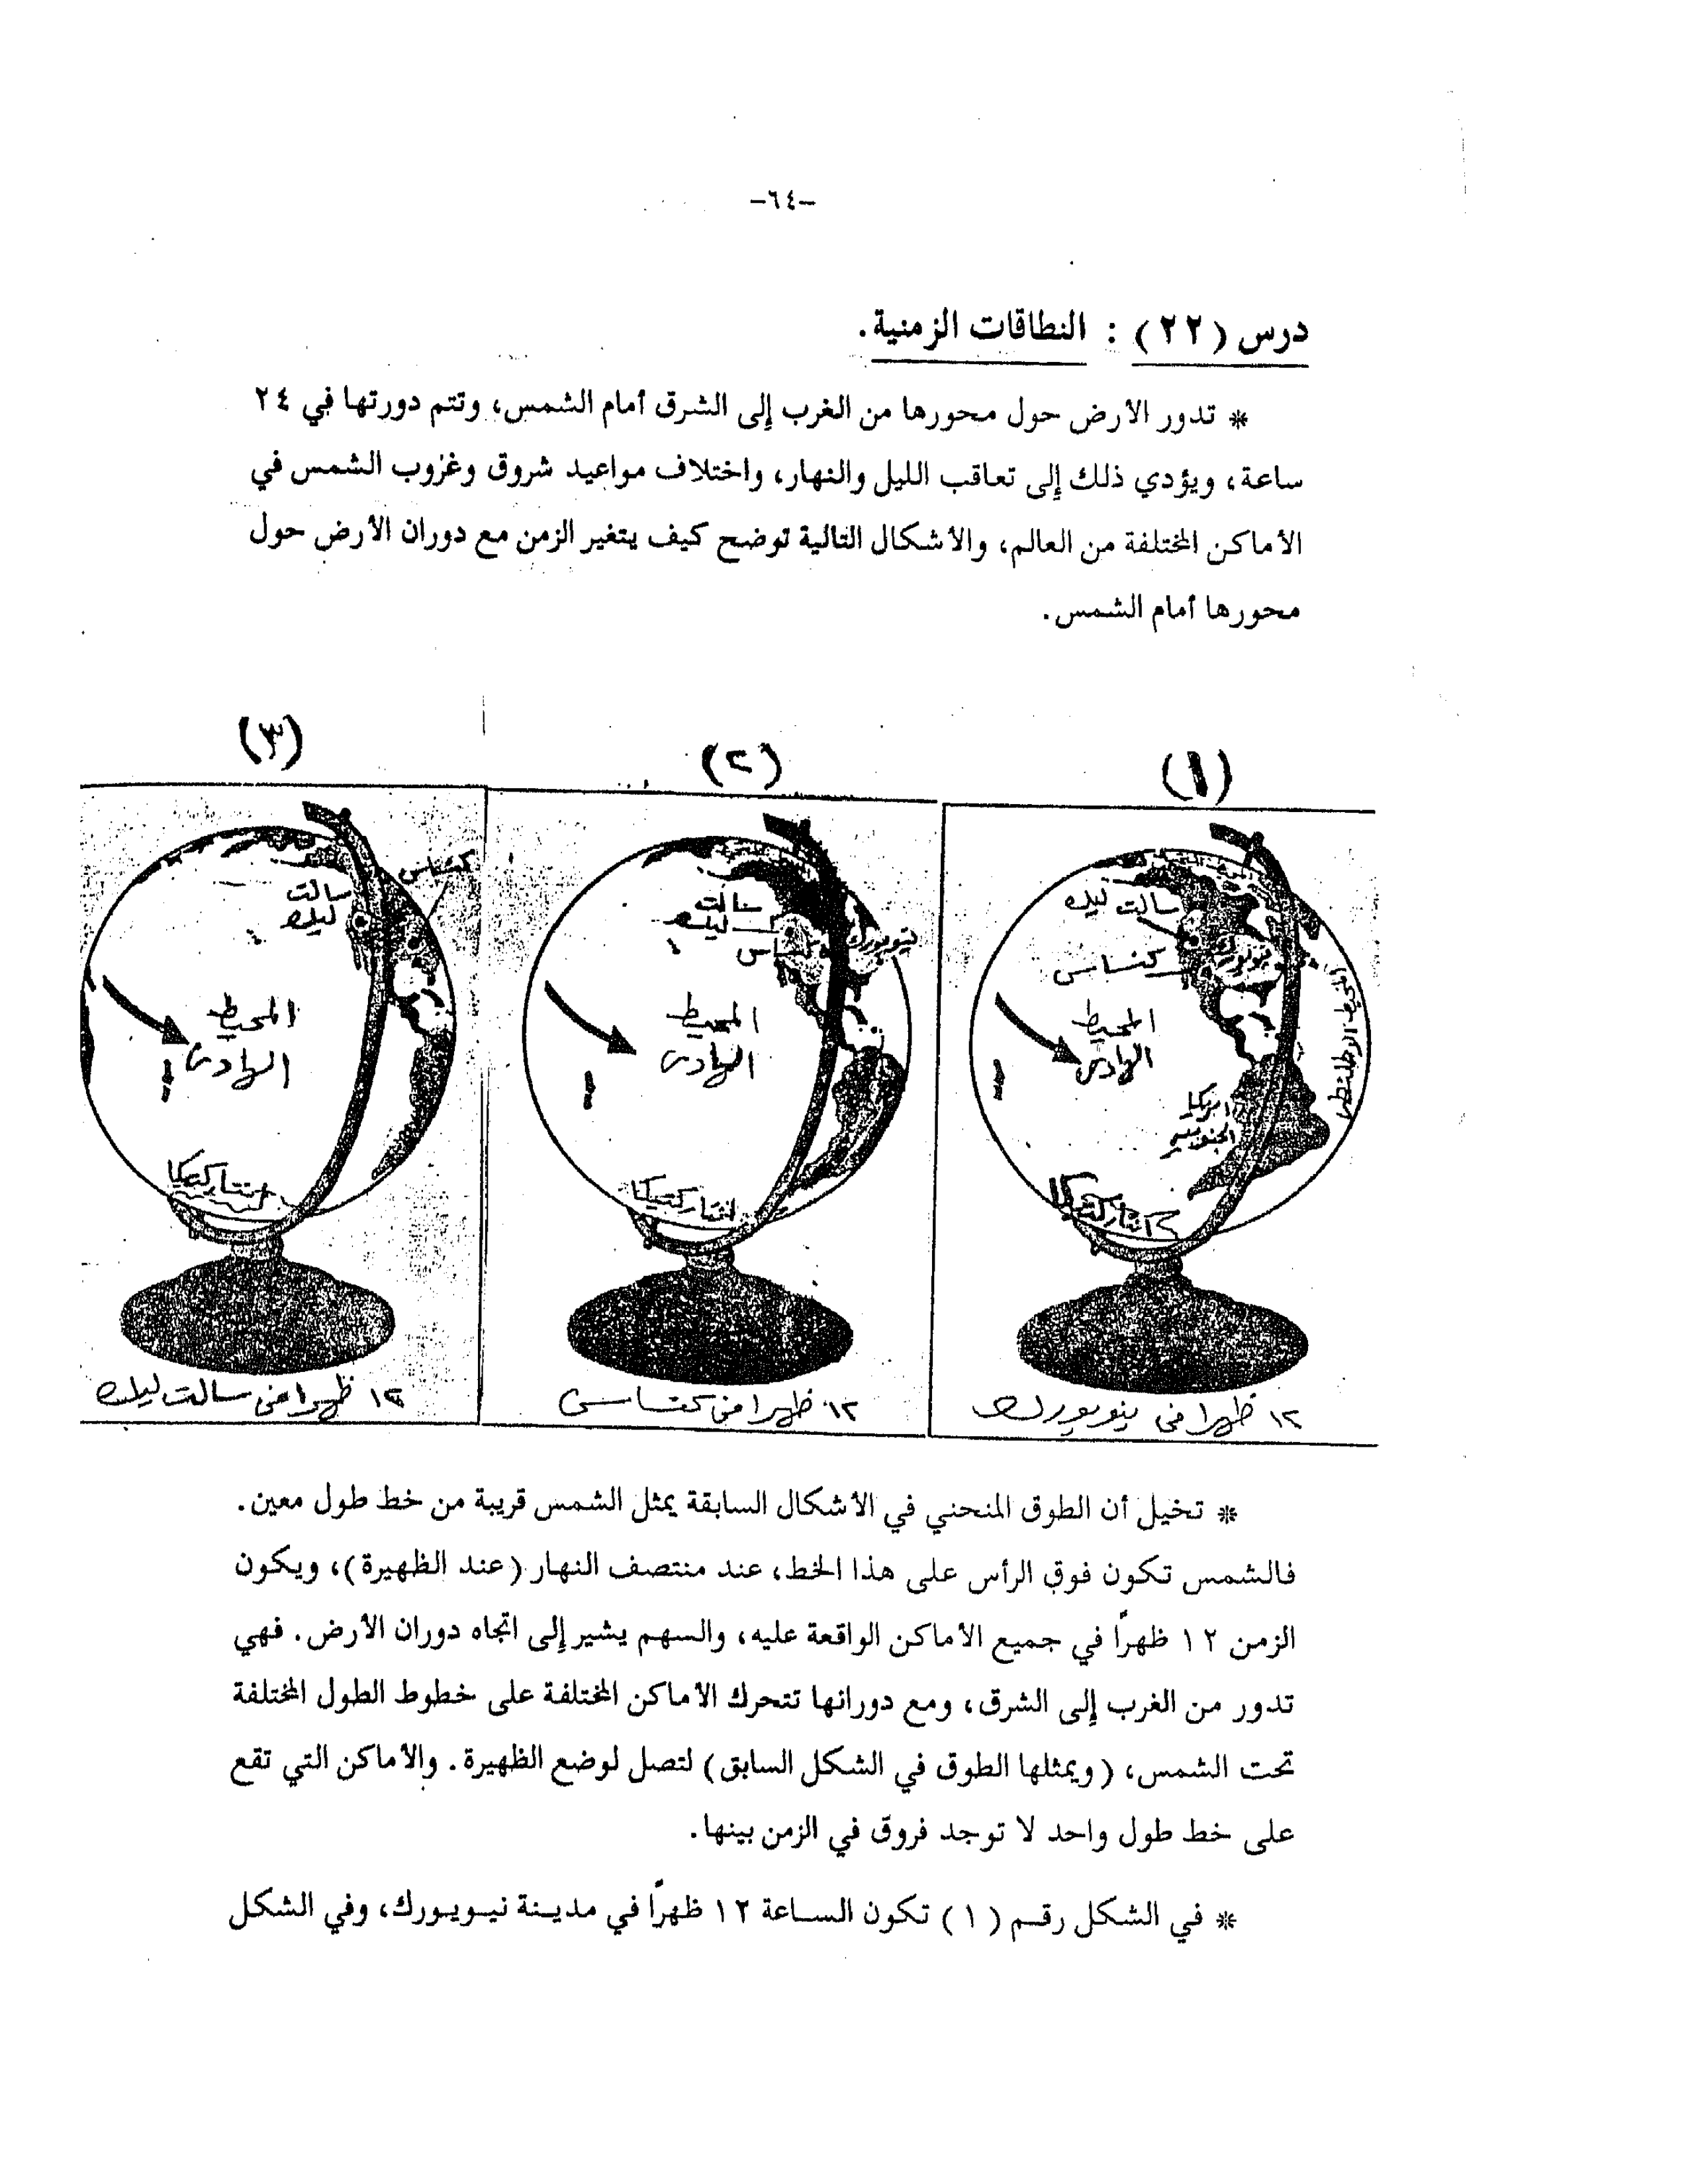 -٦٤-
درس (٢٢) : النطاقات الزمنية.
* تدور الأرض حول محورها من الغرب إلى الشرق أمام الشمس، وتتم دورتها في ٢٤
ساعة، ويؤدي ذلك إلى تعاقب الليل والنهار، واختلاف مواعيد شروق وغروب الشمس في
الأماكن المختلفة من العالم، والأشكال التالية توضح كيف يتغير الزمن مع دوران الأرض حول
محورها أمام الشمس.
(١)
سالت ليك
نيويورك
كنساس
المحيط الأطلنطى
المحيط
الهادى
امريكا
الجنوبية
انتاركتيكا
١٢ ظهرا فى نيويورك
(٢)
سالت
ليك
نيويورك
المحيط
الهادى
انتاركتيكا
١٢ ظهرا فى كنساس
(٣)
كنساس
سالت
ليك
المحيط
الهادى
انتاركتيكا
١٢ ظهرا فى سالت ليك
* تخيل أن الطوق المنحني في الأشكال السابقة يمثل الشمس قريبة من خط طول معين.
فالشمس تكون فوق الرأس على هذا الخط، عند منتصف النهار (عند الظهيرة)، ويكون
الزمن ١٢ ظهرًا في جميع الأماكن الواقعة عليه، والسهم يشير إلى اتجاه دوران الأرض. فهي
تدور من الغرب إلى الشرق، ومع دورانها تتحرك الأماكن المختلفة على خطوط الطول المختلفة
تحت الشمس، (ويمثلها الطوق في الشكل السابق) لتصل لوضع الظهيرة. والأماكن التي تقع
على خط طول واحد لا توجد فروق في الزمن بينها.
* في الشكل رقم (١) تكون الساعة ١٢ ظهرًا في مدينة نيويورك، وفي الشكل